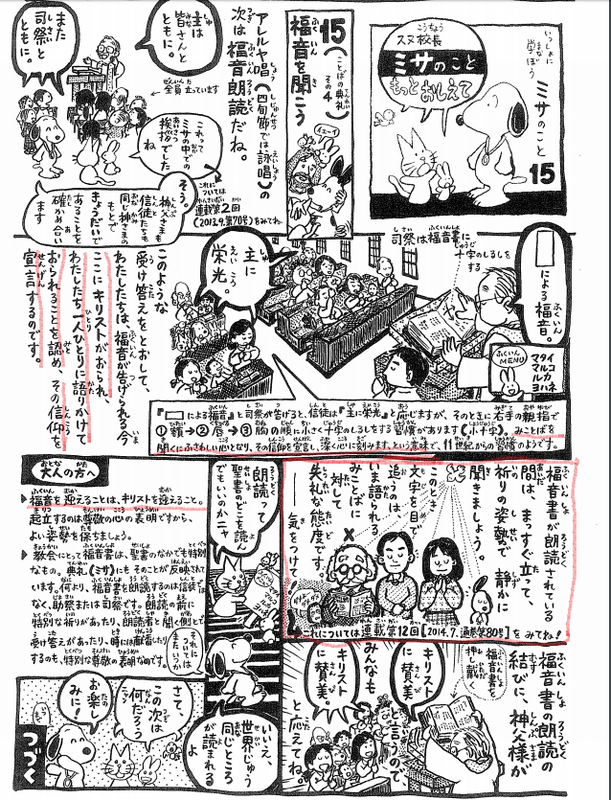 いっしょに学ぼう
ミサのこと
15
スヌ校長
ミサのこと
もっとおしえて
15
(ことばの典礼 その4)
福音を聞こう
アレルヤ唱(四旬節では詠唱)の
次は福音朗読だね。
主は
皆さんと
ともに。
また
司祭と
ともに。
全員立っています
これって
ミサの中での
挨拶でした
これに
ついては
連載第2回
(2013.9.第70号)をみてね
そう。
神父様も
信徒たちも
同じ神さまの
もとで
きょうだいで
あることを
確かめ合い
ます
□による福音。
司祭は福音書に
十字のしるしを
する
ふくいん
MENU
マタイ
マルコ
ルカ
ヨハネ
主に
栄光。
このような
受け答えをとおして、
わたしたちは、福音が告げられる今
ここにキリストがおられ
わたしたち一人ひとりに語りかけて
おられることを認め、その信仰を
宣言するのです。
『□による福音』と司祭が告げると、信徒は『主に栄光』と応じますが、そのときに右手の親指で
①額→②口→③胸の順に小さく十字のしるしをする習慣があります(小十字)。みことばを
聞くにふさわしい心となり、その信仰を宣言し、深く心に刻みます、という意味で、11世紀からの習慣のようです。
福音書が朗読されている
間は、まっすぐ立って、
祈りの姿勢で 静かに
聞きましょう。
このとき
文字を目で
追うのは、
いま語られる
みことばに
対して
失礼な態度です。
―気をつけて!
これについては連載第12回[2014.7.通巻第80号]をみてね!
朗読って
聖書のどこを読ん
でもいいのかニャ
いいえ、
世界じゅう
同じところ
が読まれる
よ
それに
ついては
またいつか
大人の方へ
▶福音を迎えることは、キリストを迎えること。
起立するのは尊敬の心の表明ですから、
よい姿勢を保ちましょう。
▶教会にとって福音書は、聖書のなかでも特別
なもの。典礼(ミサ)にもそのことが反映されて
います。何より、福音書を朗読するのは信徒では
なく、助祭または司祭です。朗読の前に
特別な祈りがあったり、朗読者と聞く側とで
受け答えがあったり、時には献香したり
するのも、特別な尊敬の表明なのです。
福音書の朗読の
結びに、神父様が
福音書を
押し戴く
キリスト
に賛美。
と言うので
みんなも
キリスト
に賛美。
と応えてね。
さて、
この次は
何だろう
お楽し
みに!
つづく